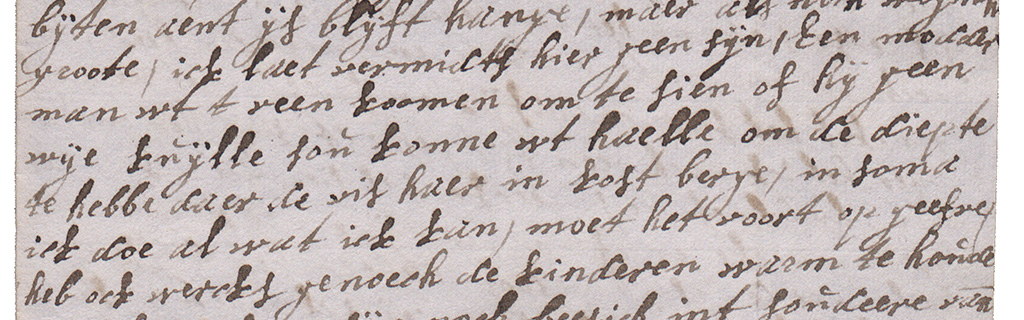 bijten aent ijs blijft hange, maer als men
groote, ick laet vermidts hier geen sijn, een modder
man wt t veen koomen om te sien of hij geen
wije kuijlle sou konne wt haelle om de diepte
te hebbe daer de vis haer in kost berge, in soma
ick doe al wat ick kan, moet het voort op geefve,
heb ock wercks genoech de kinderen warm te houde
noch beesich int soudeere van